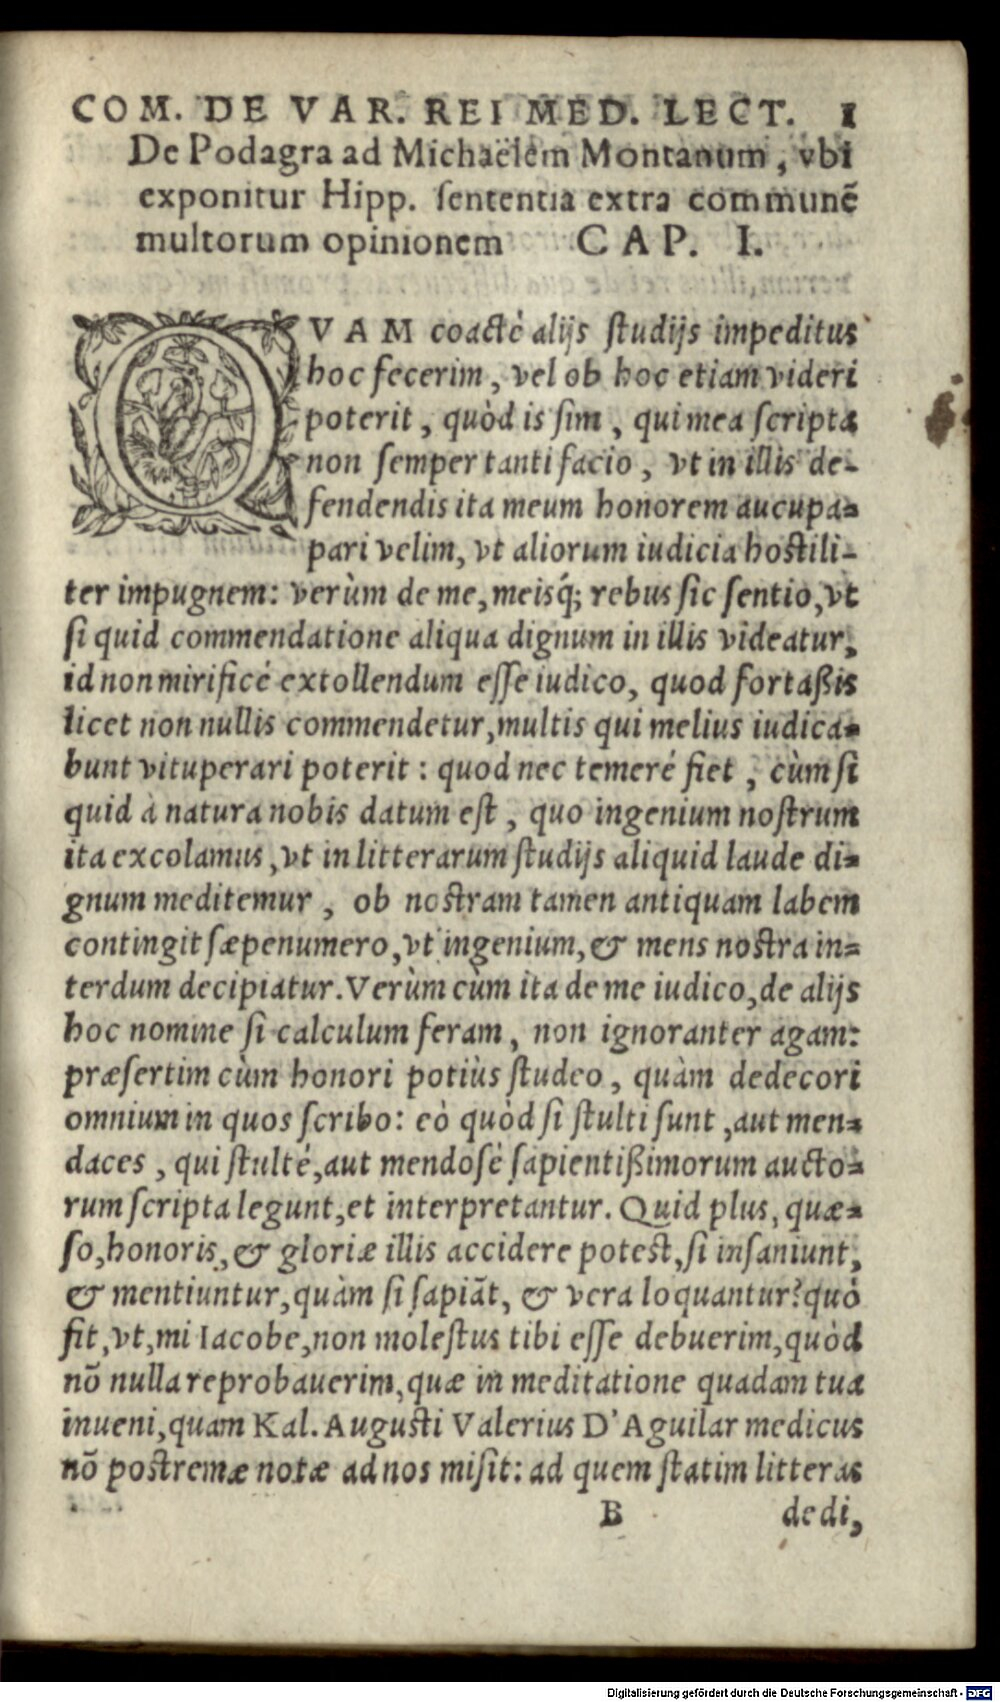 COM. DE VAR. REI MED. LECT. 1
De Podagra ad Michaëlem Montanum, vbi
exponitur Hipp. sententia extra communẽ
multorum opinionem CAP. I.
QVAM coactè alijs studijs impeditus
hoc fecerim, vel ob hoc etiam videri
poterit, quòd is sim, qui mea scripta
non semper tanti facio, vt in illis de-
fendendis ita meum honorem aucupa-
pari velim, vt aliorum iudicia hostili-
ter impugnem: verùm de me, meisq́; rebus sic sentio, vt
si quid commendatione aliqua dignum in illis videatur,
id non mirificé extollendum esse iudico, quod fortaßis
licet non nullis commendetur, multis qui melius iudica-
bunt vituperari poterit: quod nec temeré fiet, cùm si
quid à natura nobis datum est, quo ingenium nostrum
ita excolamus, vt in litterarum studijs aliquid laude di-
gnum meditemur, ob nostram tamen antiquam labem
contingit sæpenumero, vt ingenium, & mens nostra in-
terdum decipiatur. Verùm cùm ita de me iudico, de alijs
hoc nomine si calculum feram, non ignoranter agam:
præsertim cùm honori potiùs studeo, quàm dedecori
omnium in quos scribo: eò quòd si stulti sunt, aut men-
daces, qui stulté, aut mendosé sapientißimorum aucto-
rum scripta legunt, et interpretantur. Quid plus, quæ-
so, honoris, & gloriæ illis accidere potest, si insaniunt,
& mentiuntur, quàm si sapiãt, & vera loquantur? quò
fit, vt, mi Iacobe, non molestus tibi esse debuerim, quòd
nõ nulla reprobauerim, quæ in meditatione quadam tua
inueni, quam Kal. Augusti Valerius D'Aguilar medicus
nõ postremæ notæ ad nos misit: ad quem statim litteras
B dedi,
Digitalisierung gefördert durch die Deutsche Forschungsgemeinschaft - DFG